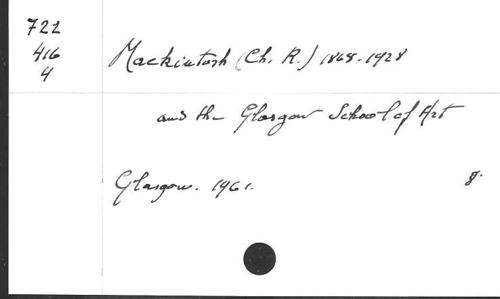 722
416
4
Mackintosh (Ch. R.) 1868-1928
and the Glasgow School of Art
Glasgow. 1961.
8.